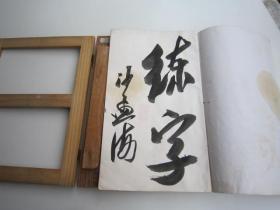 练字
沙孟海